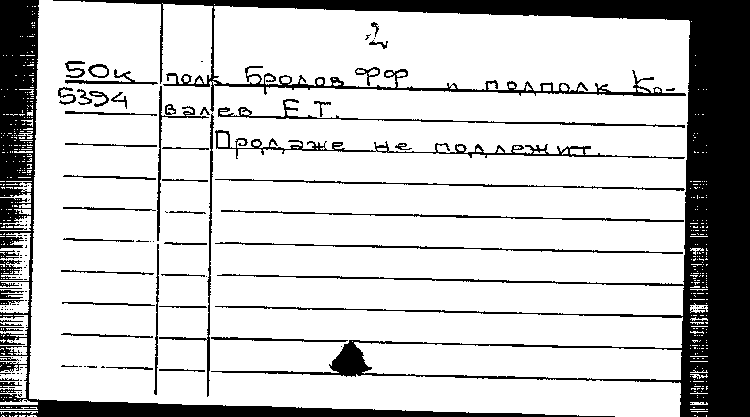 2
50к полк. Бродов Ф.Ф. и подполк Ко-
5394 валев Е.Т.
Продаже не подлежит.